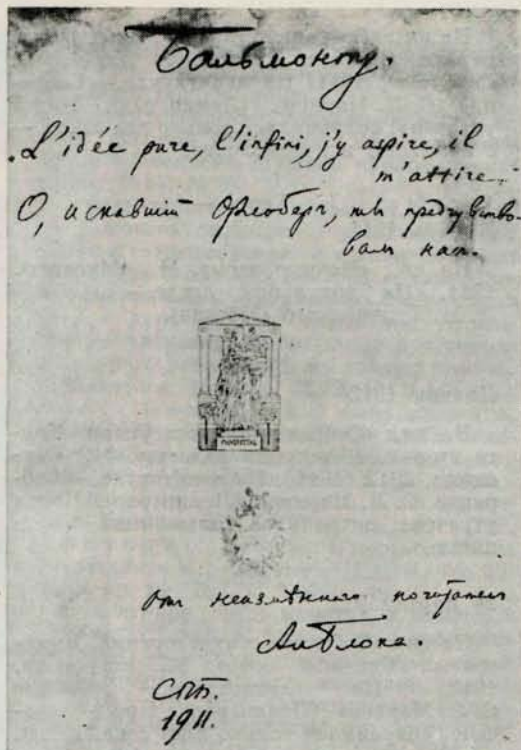 Бальмонту.
L'idée pure, l'infini, j'y aspire, il
m'attire.
О, искавшій Флоберъ, ты предчувство-
валъ насъ.
Отъ неизмѣннаго почитателя
Ал. Блока.
Спб.
1911.